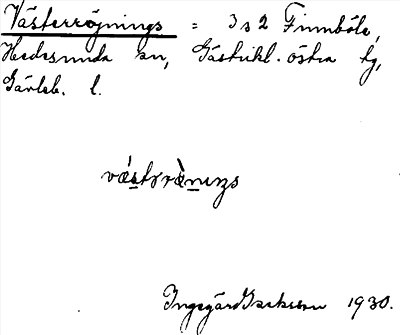 Västerröjnings = 3 s 2 Finnböle,
Hedesunda sn, Gästrikl. östra tg,
Gävleb. l.
västərrö̀nɪŋs
Ingegärd Isaksson 1930.